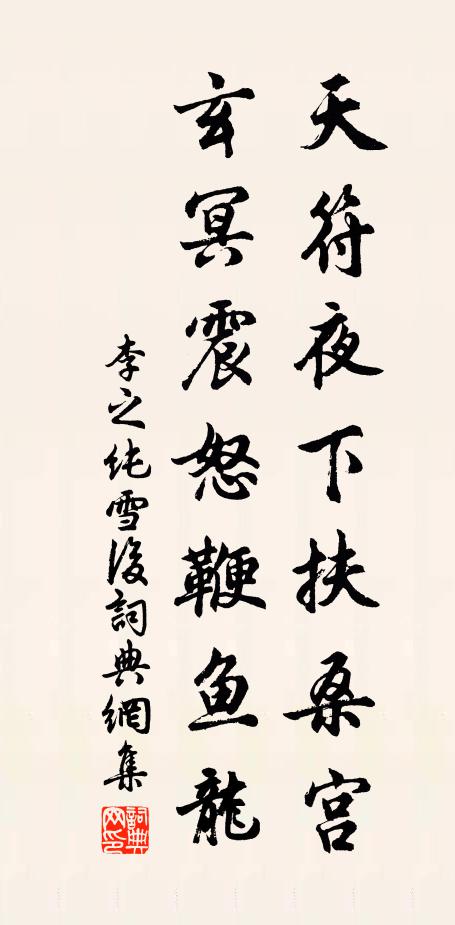 天符夜下扶桑宫
玄冥震怒鞭鱼龍
李之纯雪後詞典網集
詞典网印